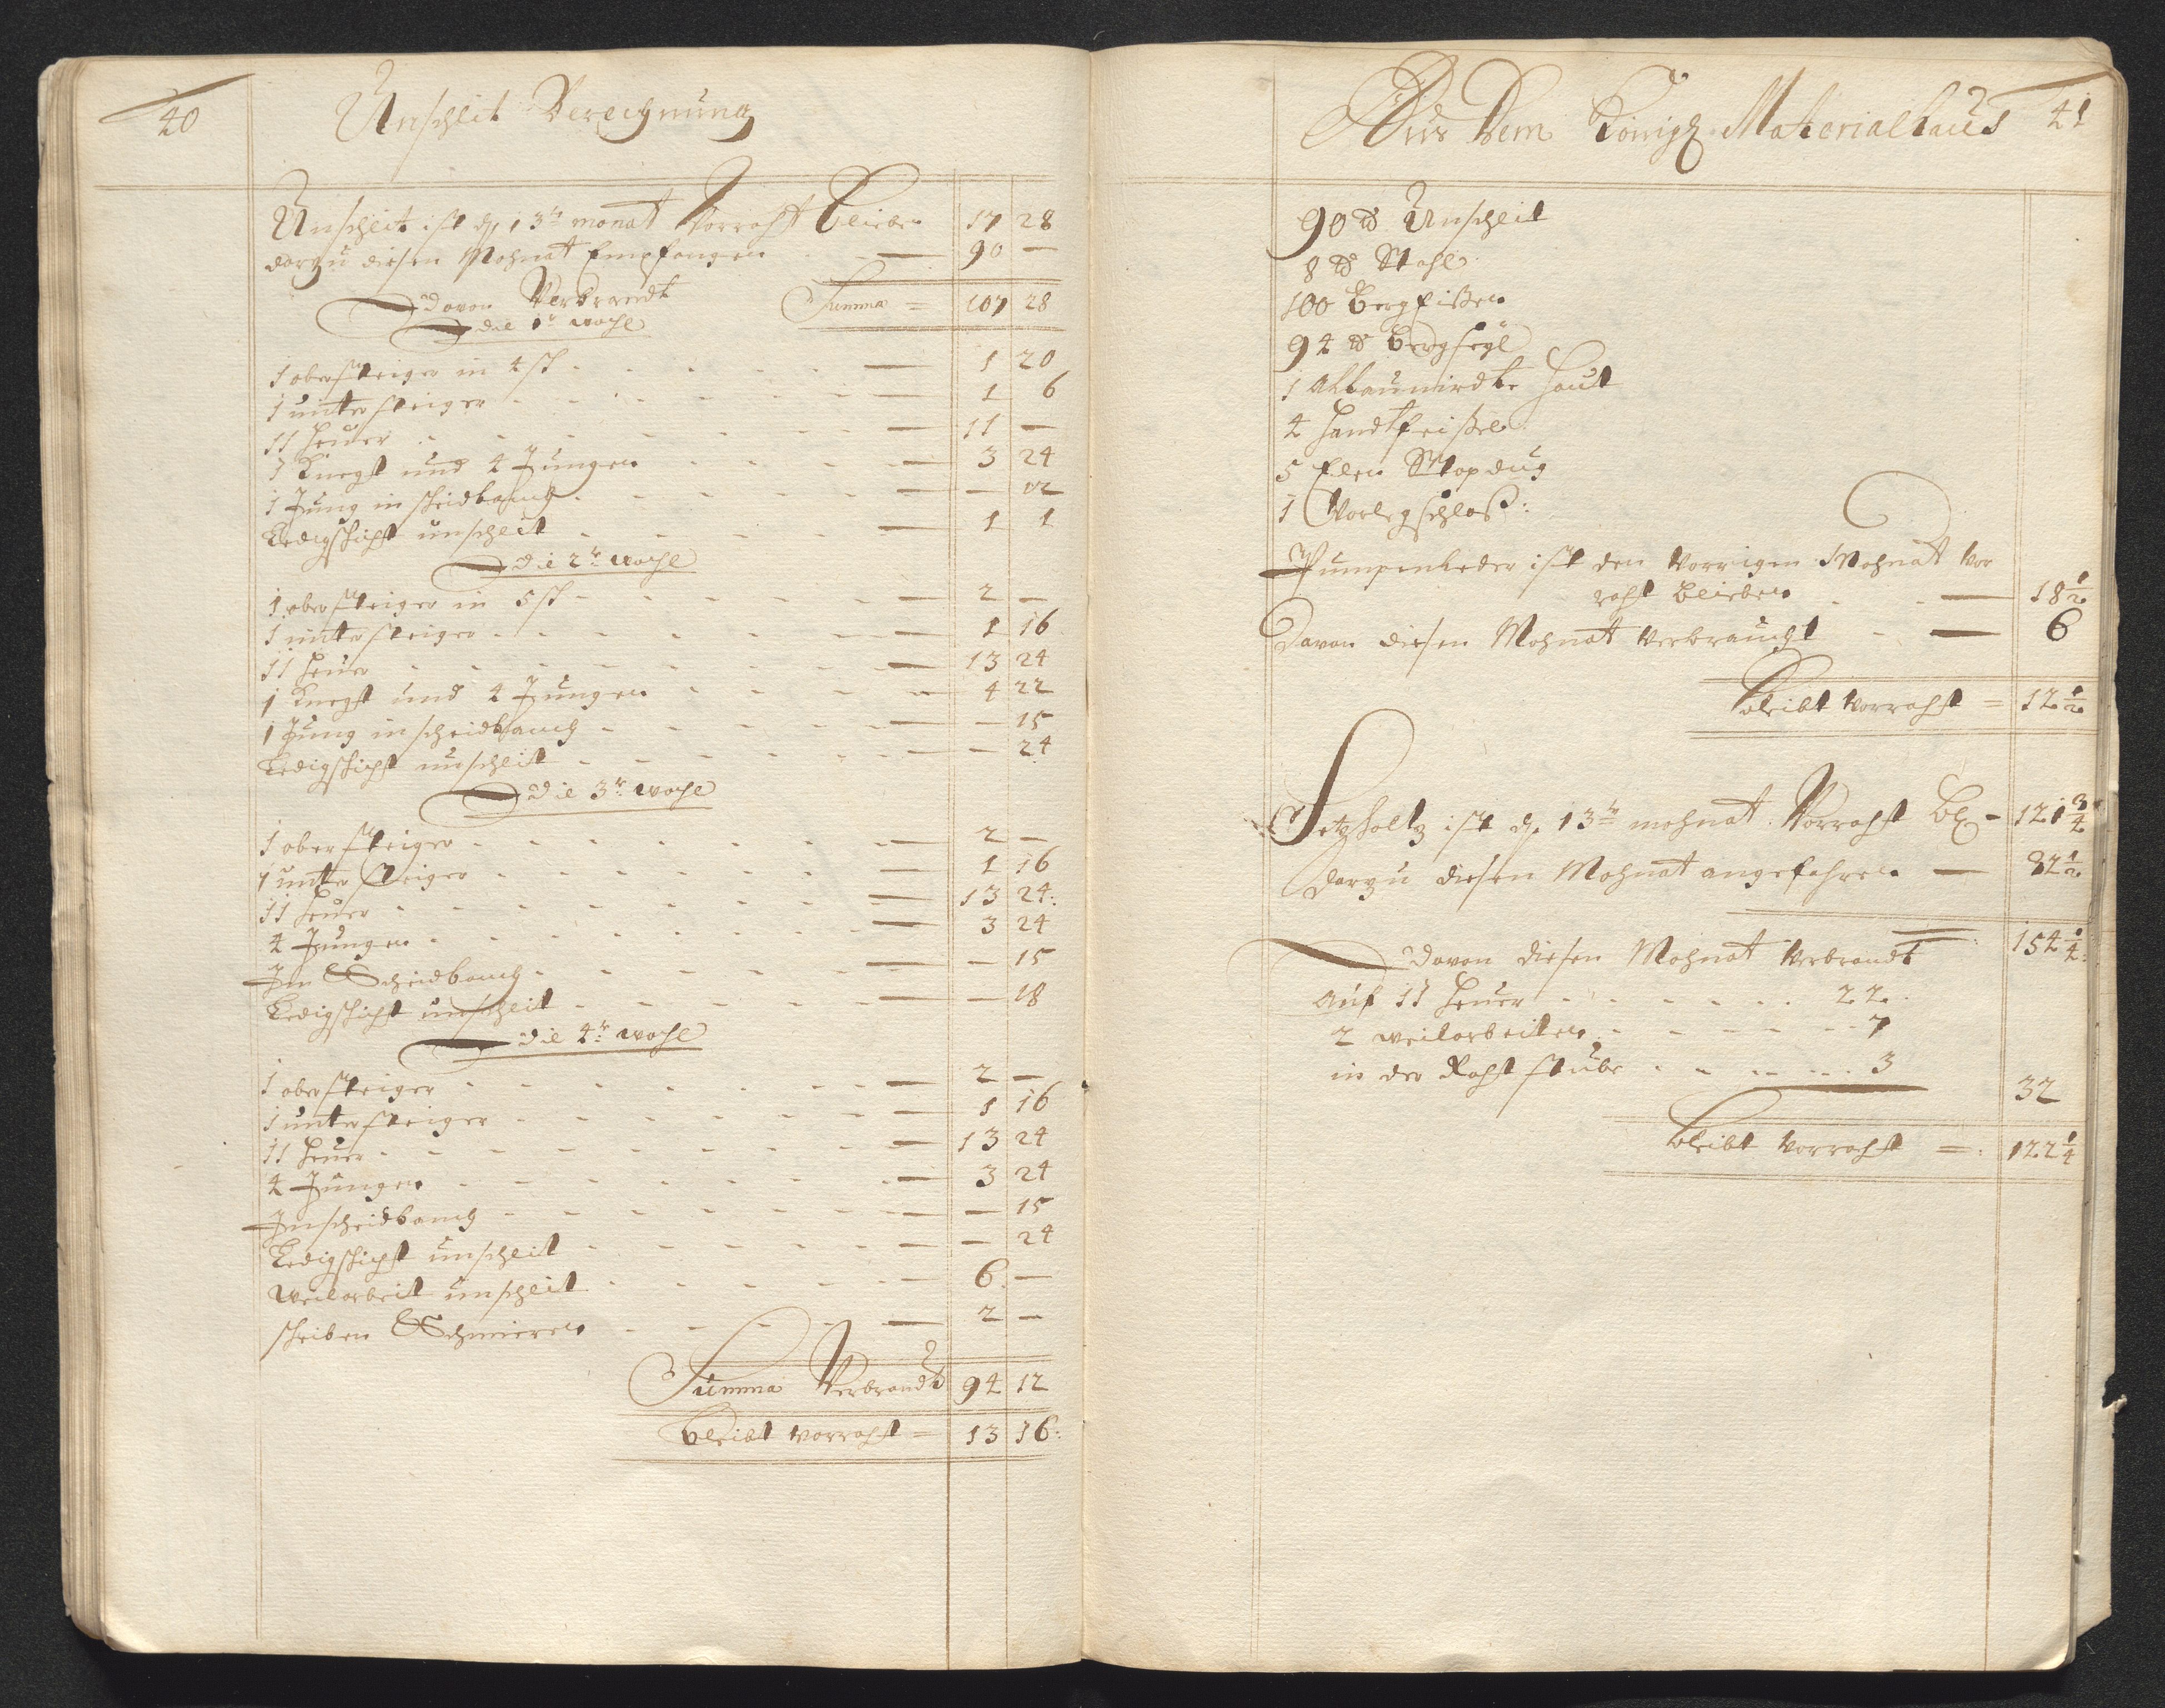 40
Unschlit Berechnung
Unschleit ist d. 13te monat Vorraht bleiben 17 28
dorzu diesen Mohnat Empfangen — 90 —
Davon Verbrandt Summa = 107 28
die 1te woche
1 obersteiger in 4 sch — 1 20
1 untersteiger — 1 6
11 heuer — 11 —
1 Knecht und 4 Jungen — 3 24
1 Jung in scheidbanch — — 12
Ledigschicht unschleit — 1 1
Die 2te woche
1 obersteiger in 5 sch — 2 —
1 untersteiger — 1 16
11 heuer — 13 24
1 Knecht und 4 Jungen — 4 22
1 Jung in scheidbanch — — 15
Ledigschicht unschleit — — 24
Die 3te woche
1 obersteiger — 2 —
1 untersteiger — 1 16
11 heuer — 13 24:
4 Jungen — 3 24
Jn Scheidbanch — — 15
Ledigschicht unschleit — — 18
Die 4te woche
1 obersteiger — 2 —
1 untersteiger — 1 16
11 heuer — 13 24
4 Jungen — 3 24
Jn scheidbanch — — 15
Ledigschicht unschleit — — 24
Weilarbeit unschleit — 6 —
scheiben Schmieren — 2 —
Summa Verbrandt 94 12
bleibt vorraht = 13 16:
Aus Dem Königl Materialhaus 41
90 ℔ Unschleit
8 ℔ Stahl
100 Berg
94 ℔ berg
1 haut
4 handt
5 Elen
1 Vorlegschloß:
Pumpenleder ist den vorrigen Mohnat vor
raht bleiben — 18 1/2
Davon diesen Mohnat verbraucht — 6
bleibt vorraht = 12 1/2
Setzholtz ist d. 13te mohnat Vorraht bl — 121 3/4
dorzu diesen Mohnat angefahren — 32 1/2
154 1/4
Davon diesen Mohnat Verbrandt
Auf 11 heuer 22
2 weilarbeiten 7
in der Rahtstube 3
32
bleibt vorraht = 122 1/4